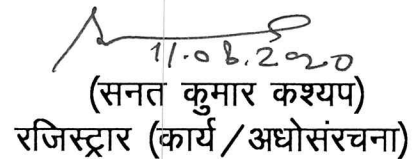 11.06.2020
(सनत कुमार कश्यप)
रजिस्ट्रार (कार्य/अधोसंरचना)